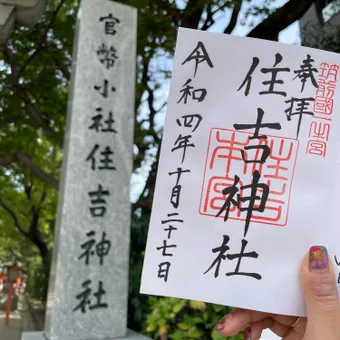 官幣小社住吉神社
奉拝
筑前國一之宮
住吉神社
住吉本宮
令和四年十月二十七日